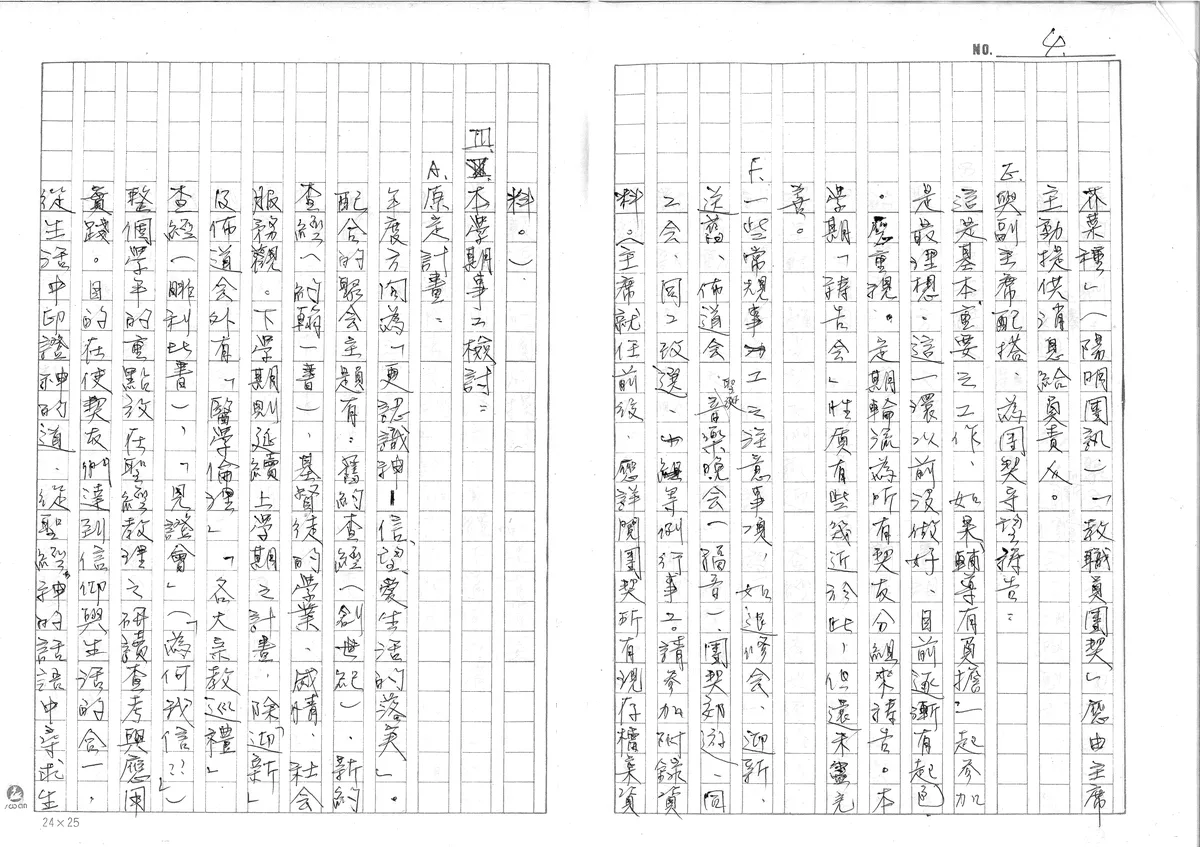 NO. 4.
芥菜種」(陽明團訊)「教職員團契」應由主席
主動提供消息給負責人。
E. 與副主席配搭、為團契守望禱告:
這是基本重要之工作、如果輔導有負擔一起參加
是最理想、這一環以前沒做好、目前逐漸有起色
。應重視。定期輪流為所有契友分組來禱告。本
學期「禱告會」性質有些幾近於此,但還未盡完
善。
F. 一些常規事工之注意事項,如退修會、迎新、
送舊、佈道會、聖誕音樂晚會(福音)、團契郊遊、同
工會、同工改選、小組等例行事工。請參加附錄資
料。(主席就任前後、應詳閱團契所有現存檔案資
料。)
III. 本學期事工檢討:
A. 原定計畫:
年度方向為「更認識神—信、望、愛生活的落實」。
配合的聚會主題有:舊約查經(創世紀)、新約
查經(約翰一書)、基督徒的學業、感情、社會
服務觀。下學期則延續上學期之計畫,除迎新」
及佈道會外有「醫學倫理」「各大宗教巡禮」
查經(腓利比書)、「見證會」(「為何我信??」)
整個學年的重點放在聖經教理之研讀查考與應用
實踐。目的在使契友們達到信仰與生活的合一,
從生活中印證神的道、從聖經神的話語中尋求生
24×25